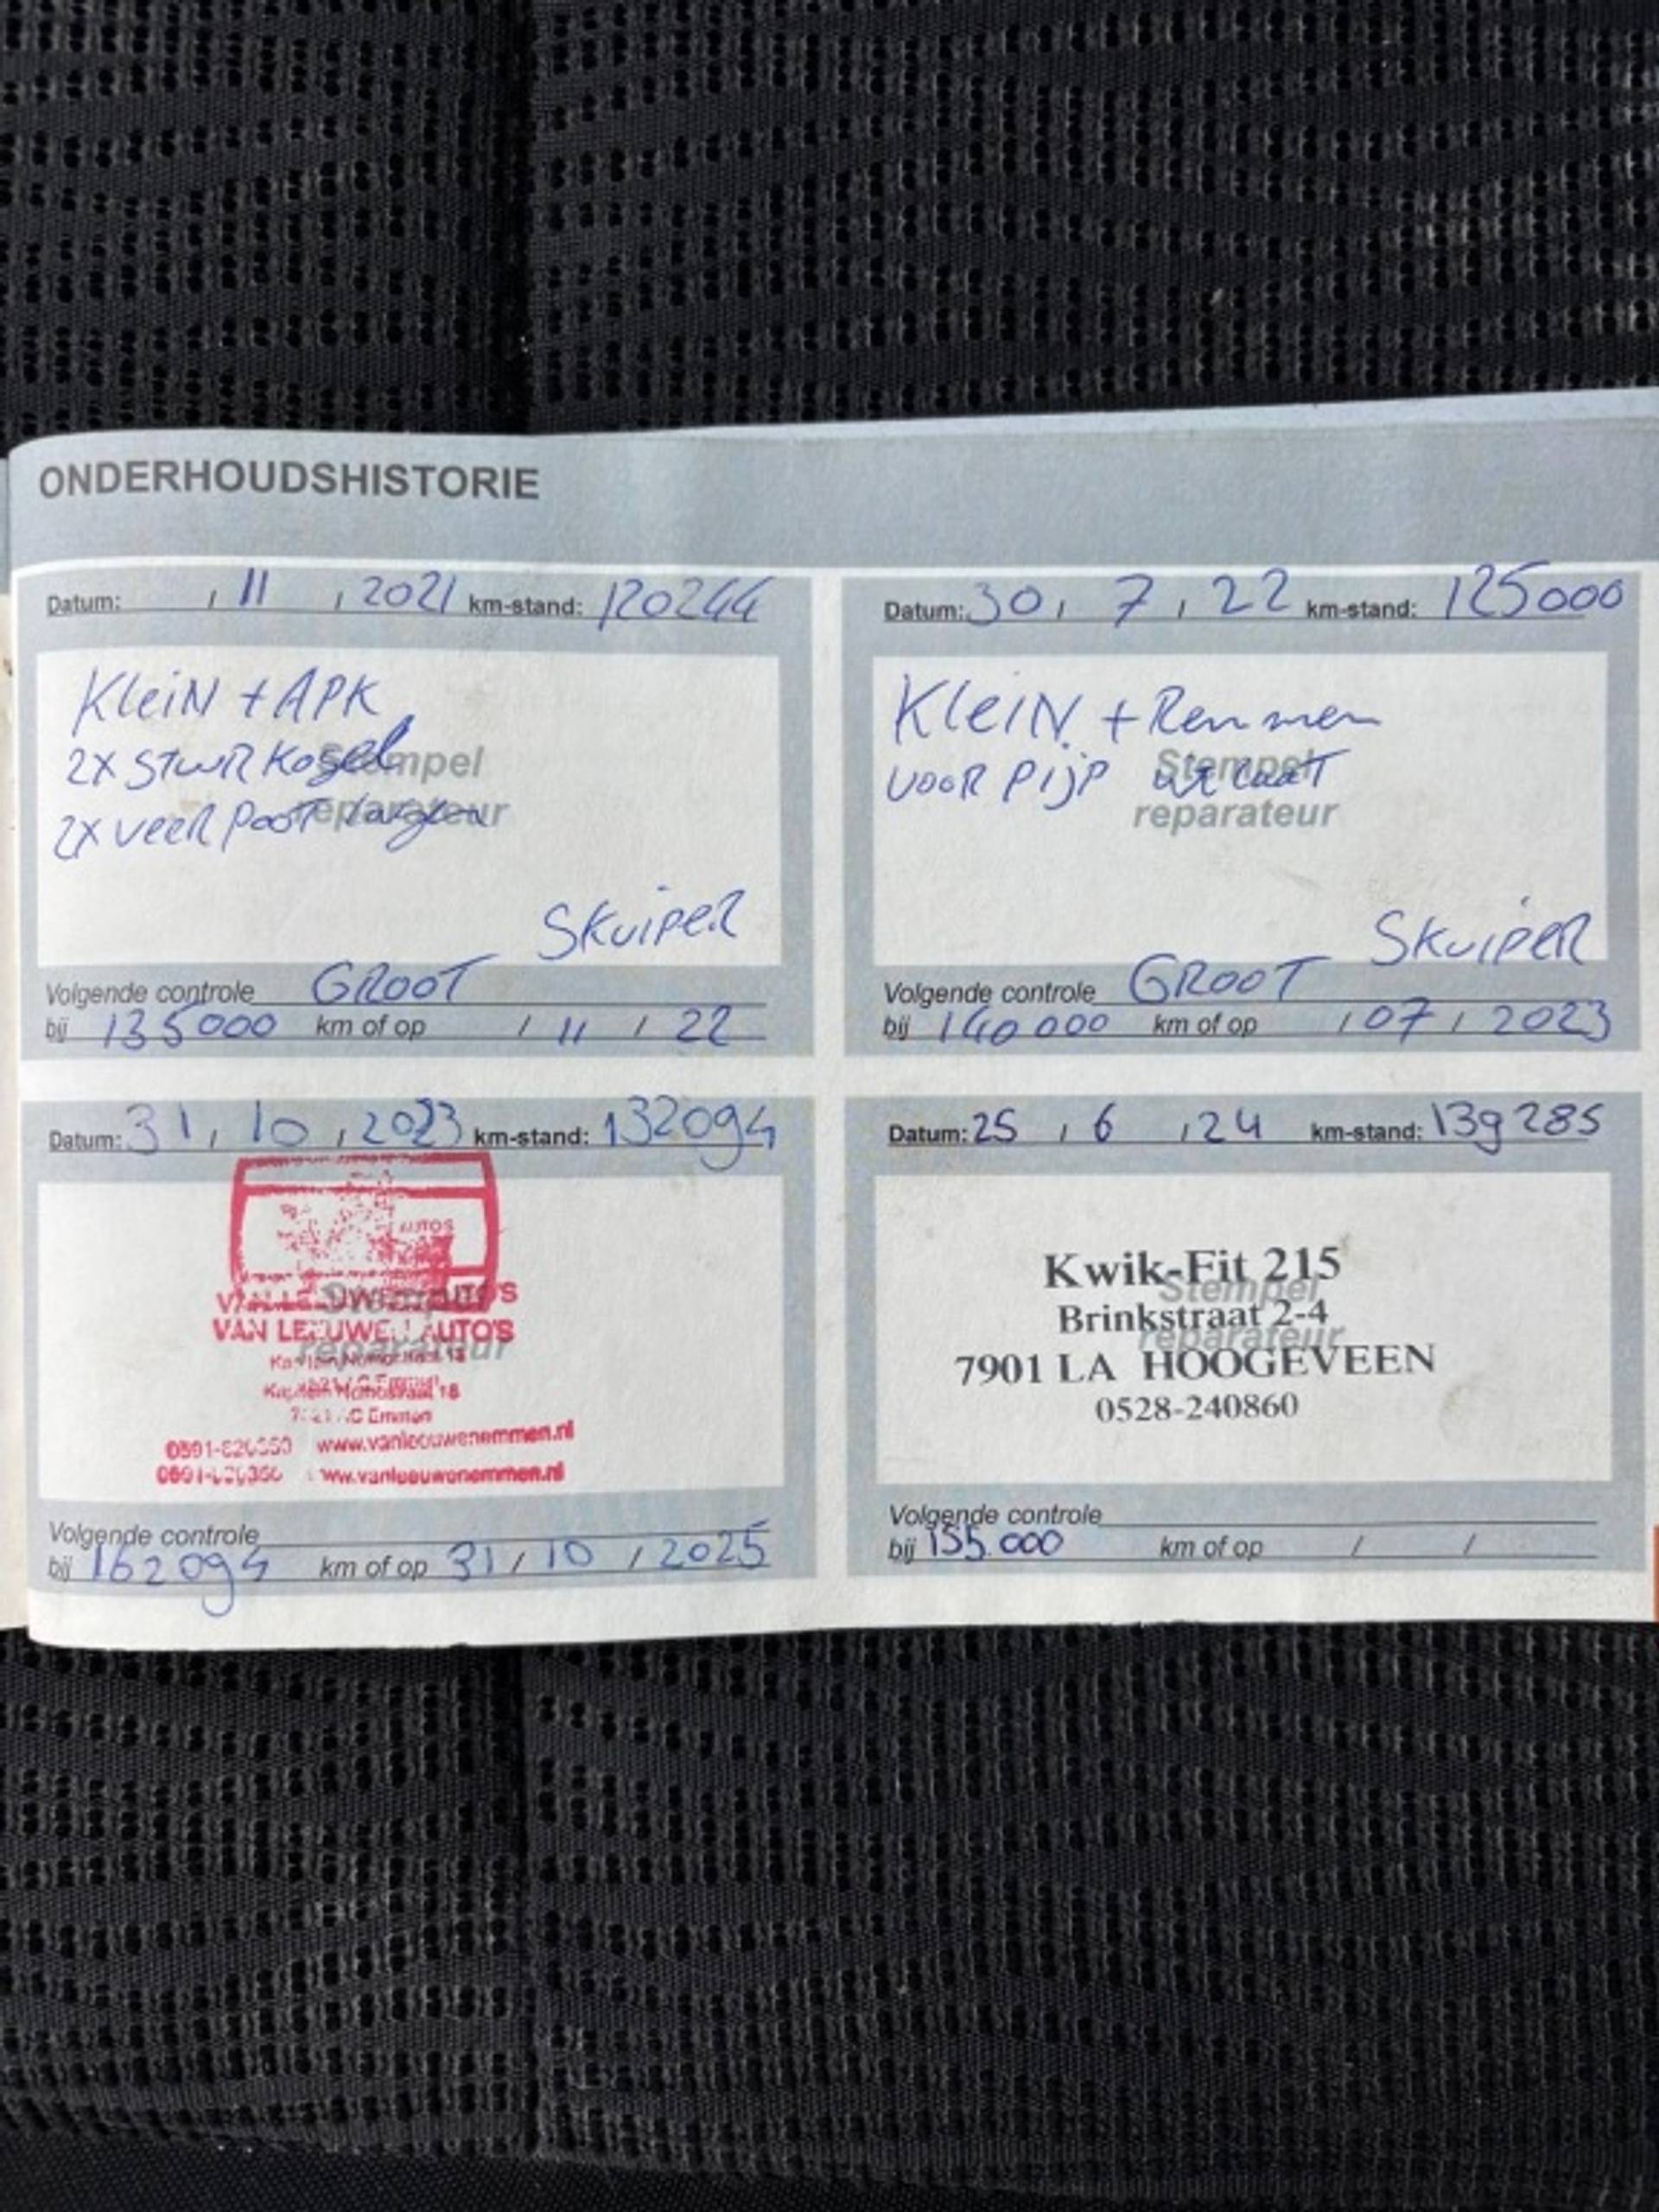 ONDERHOUDSHISTORIE
Datum: / 11 / 2021 km-stand: 120244
Klein + APK
2x stuur kogel
2x veer poot
Stempel
reparateur
Skuiper
Volgende controle GROOT
bij 135000 km of op / 11 / 22
Datum: 30 / 7 / 22 km-stand: 125000
Klein + Remmen
voor pijp uitlaat
Stempel
reparateur
Skuiper
Volgende controle GROOT
bij 140000 km of op / 07 / 2023
Datum: 31 / 10 / 2023 km-stand: 132094
AUTOS
Stempel
VAN LEEUWEN AUTO'S
VAN LEEUWEN AUTO'S
reparateur
Emmen
www.vanleeuwenemmen.nl
www.vanleeuwenemmen.nl
Volgende controle
bij 162094 km of op 31 / 10 / 2025
Datum: 25 / 6 / 24 km-stand: 139285
Kwik-Fit 215
Stempel
Brinkstraat 2-4
reparateur
7901 LA HOOGEVEEN
0528-240860
Volgende controle
bij 155.000 km of op / /